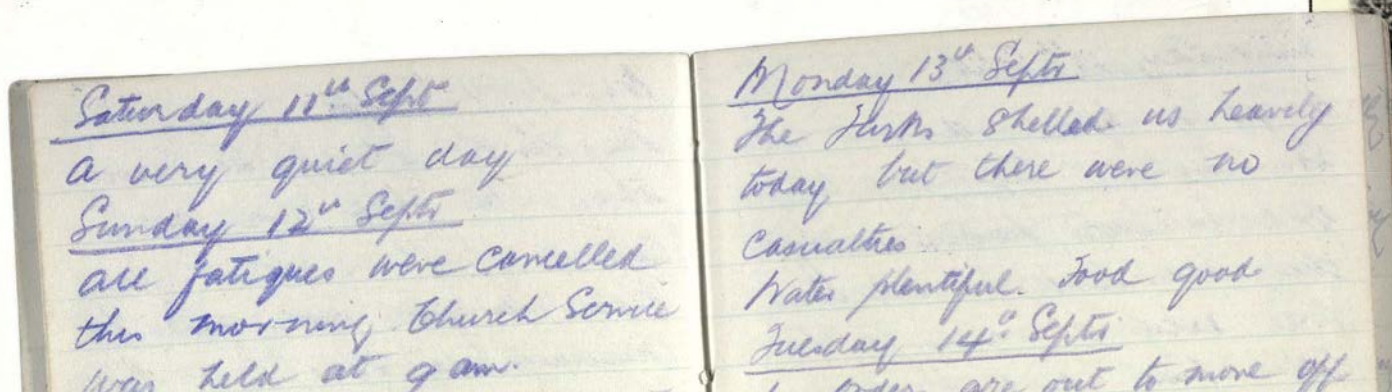 Saturday 11th Sept
A very quiet day
Sunday 12th Septr
All fatigues were cancelled
this morning Church Service
was held at 9 am.
Monday 13th Septr
The Turks shelled us heavily
today but there were no
Casualties
Water plentiful. Food good
Tuesday 14th Septr
orders are out to move off